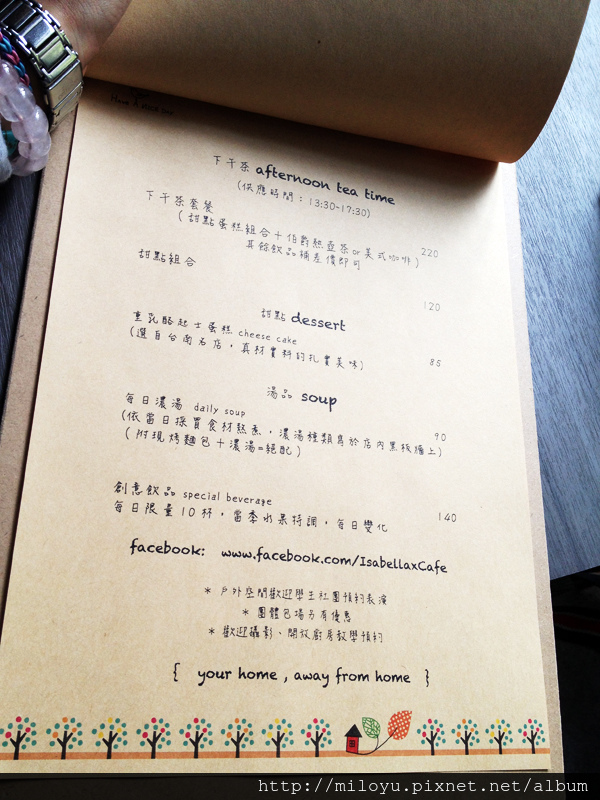 下午茶 afternoon tea time
(供應時間：13:30-17:30)
下午茶套餐
(甜點蛋糕組合＋伯爵熱壺茶or美式咖啡) 220
其餘飲品補差價即可
甜點組合 120
甜點 dessert
重乳酪起士蛋糕 cheese cake
(選自台南名店，真材實料的扎實美味) 85
湯品 soup
每日濃湯 daily soup 90
(依當日採買食材熬煮，濃湯種類寫於店內黑板牆上)
(附現烤麵包＋濃湯=絕配)
創意飲品 special beverage 140
每日限量10杯，當季水果特調，每日變化
facebook: www.facebook.com/IsabellaxCafe
＊戶外空間歡迎學生社團預約表演
＊團體包場另有優惠
＊歡迎攝影、開放廚房教學預約
{ your home , away from home }
http://miloyu.pixnet.net/album